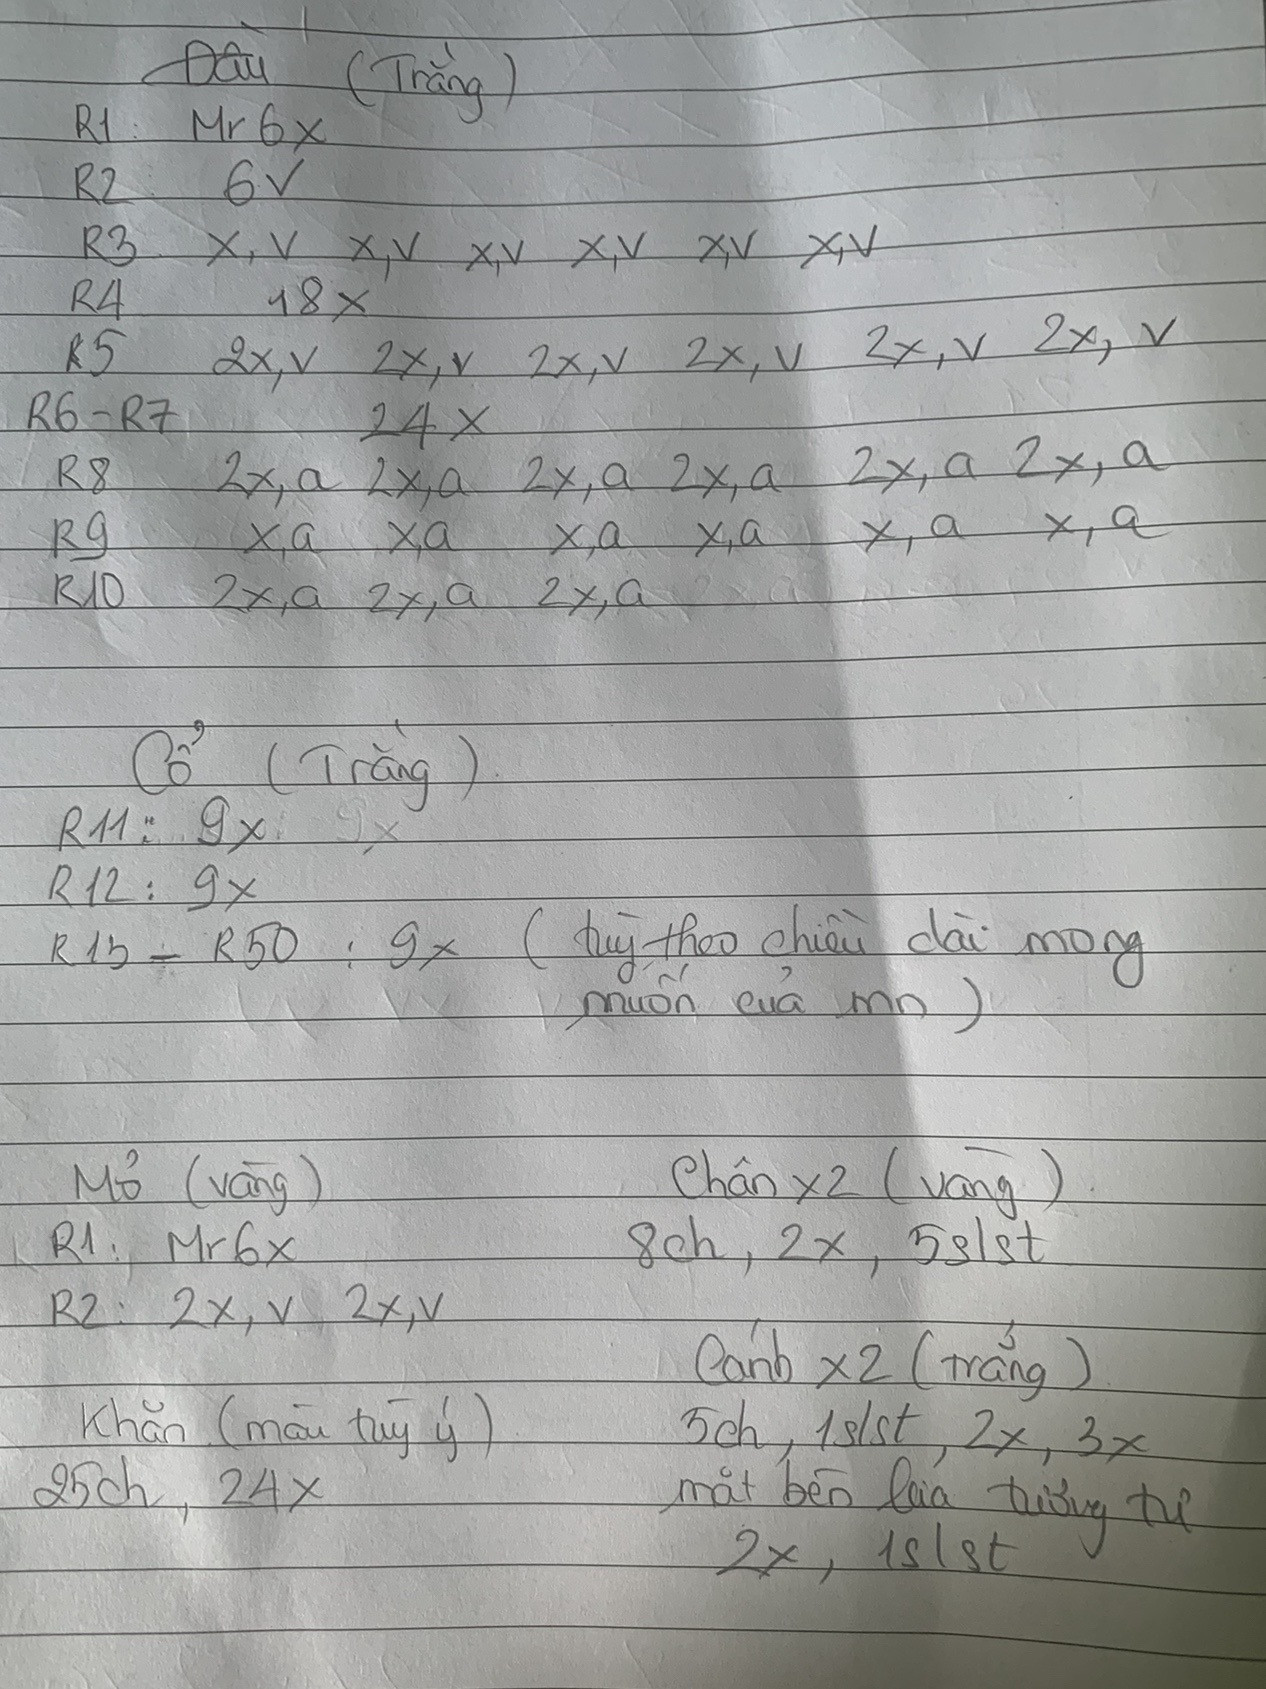 Đầu (Trắng)
R1: Mr 6x
R2: 6V
R3 x,v x,v x,v x,v x,v x,v
R4 18x
R5 2x,v 2x,v 2x,v 2x,v 2x,v 2x,v
R6-R7 24x
R8 2x,a 2x,a 2x,a 2x,a 2x,a 2x,a
R9 x,a x,a x,a x,a x,a x,a
R10 2x,a 2x,a 2x,a
Cổ (Trắng).
R11: 9x
R12: 9x
R13 - R50 : 9x (tuỳ theo chiều dài mong
muốn của mn)
Mỏ (vàng)
R1: Mr6x
R2: 2x,v 2x,v
Khăn (màu tuỳ ý)
25ch, 24x
Chân x2 (vàng).
8ch, 2x, 5slst
Cánh x2 (trắng)
5ch, 1slst, 2x, 3x
mặt bên kia tương tự
2x, 1slst